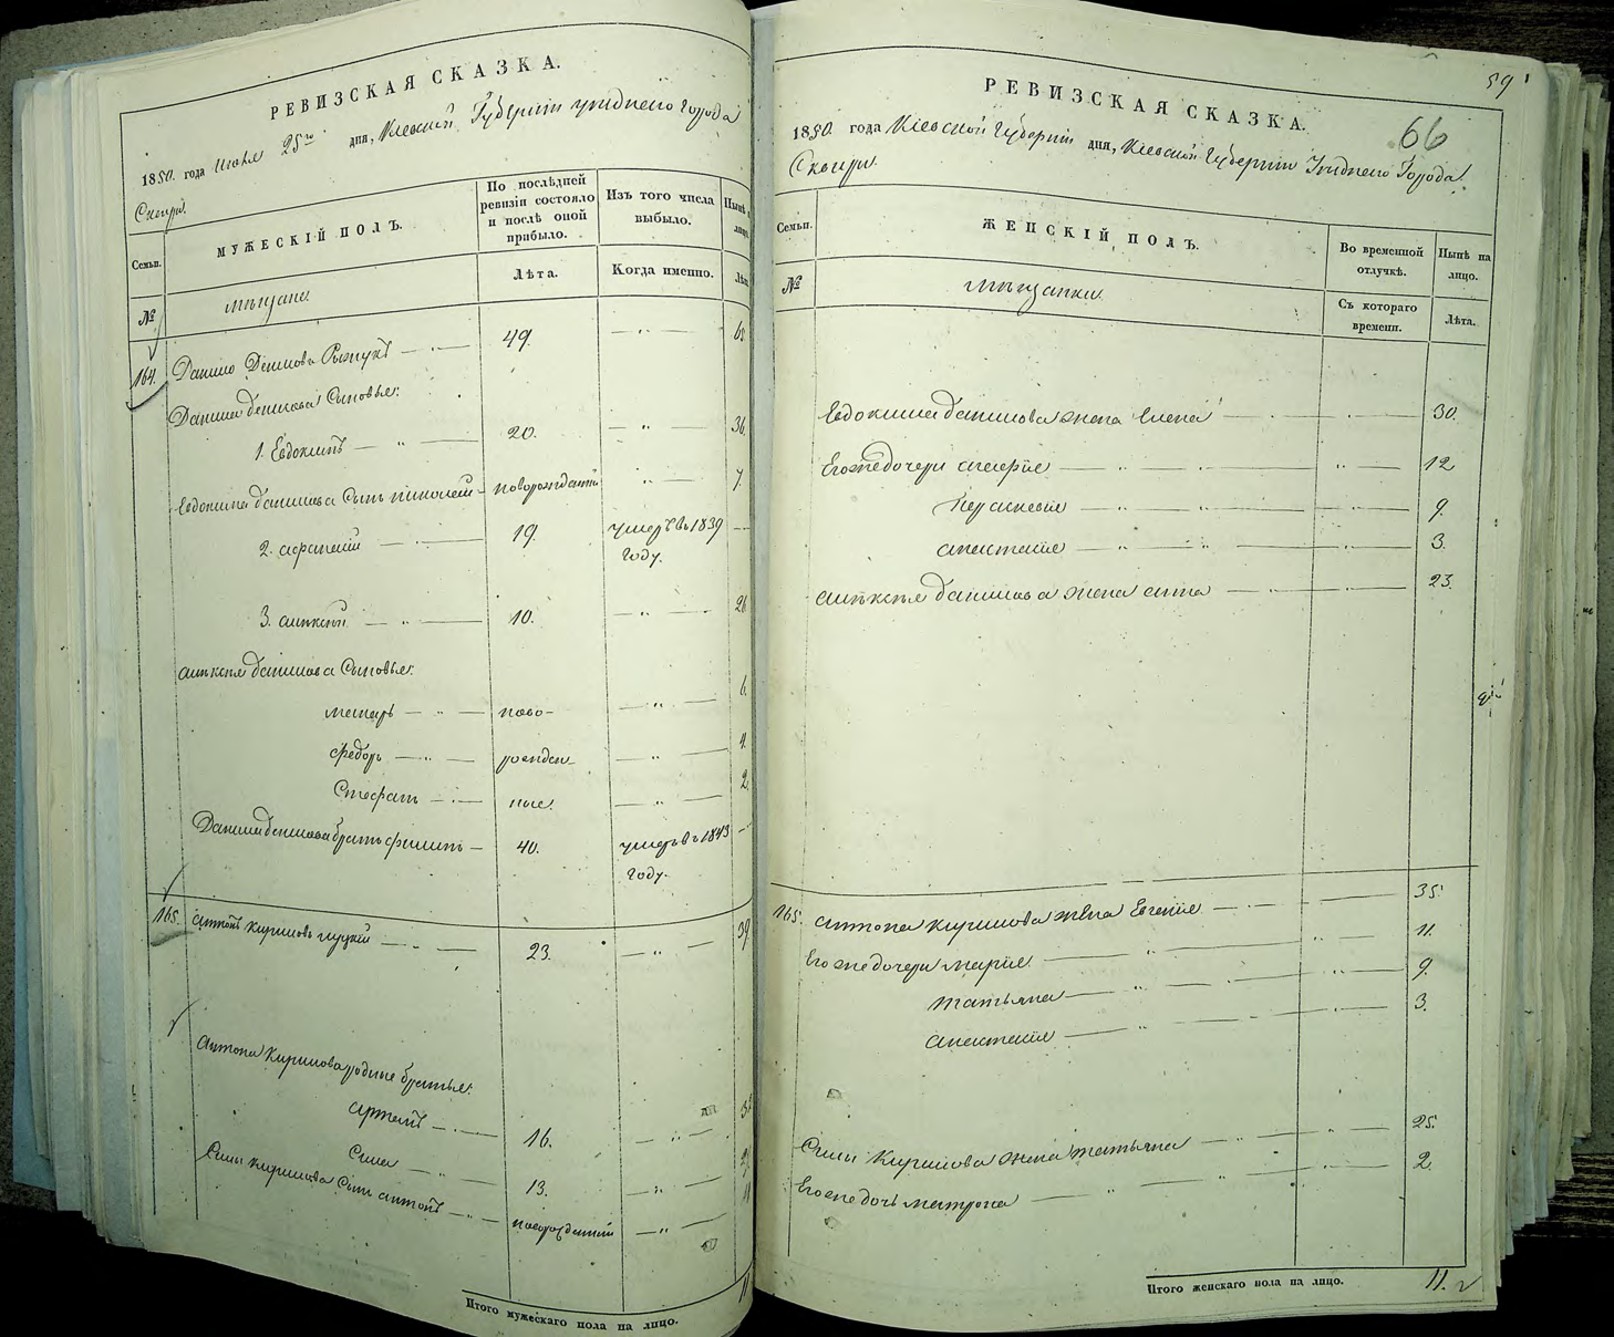 РЕВИЗСКАЯ СКАЗКА.
1850. года Июня 25го дня, Кіевской Губерніи уѣзднего города
Сквири.
Семьи.
МУЖЕСКІЙ ПОЛЪ.
По послѣдней ревизіи состояло и послѣ оной прибыло.
Изъ того числа выбыло.
Нынѣ
лицо.
№
мѣщане
Лѣта.
Когда именно.
Лѣта
164. Данило Денисовъ 49. — " — 65
Данила Денисова Сыновья:
1. Евдокимъ — " — 20. — " — 36.
Евдокима Данилова Сынъ Николай — новорожденный " — 7.
2. Афанасій — 19. умеръ въ 1839 —
году.
3. Алѣксѣй — " — 10. — " — 26
Алѣксѣя Данилова Сыновья:
— " — ново- — " — 6.
Федоръ — " — рожден- — " — 4.
Стефанъ — " — ные. — " — 2.
Данила Денисова братъ Филипъ — 40. умеръ въ 1843 —
году.
165. Антонъ Кириловъ — " — 23. — " — 39
Антона Кирилова родные братья:
Артемъ — " — 16. — " —
Сила — " — 13. — " —
Силы Кирилова Сынъ Антонъ — " — новорожденный — " —
Итого мужескаго пола на лицо. 11
59
66
РЕВИЗСКАЯ СКАЗКА.
1850. года Кіевской Губерніи дня, Кіевской Губерніи Уѣзднего Города
Сквири.
Семьи.
ЖЕНСКІЙ ПОЛЪ.
Во временной отлучкѣ.
Нынѣ на лицо.
№
мѣщанки.
Съ котораго времени.
Лѣта.
Евдокима Данилова жена Елена — " — 30.
Его же дочери — " — " — 12
Параскевія — " — " — 9.
Анастасія — " — " — 3.
Алѣксѣя Данилова жена Анна — " — 23.
165. Антона Кирилова жена Евгенія — " — 35.
Его же дочери Марія — " — " — 11.
Татьяна — " — " — 9.
Анастасія — " — 3.
Силы Кирилова жена Татьяна — " — 25.
Его же дочь Матрона — " — " — 2.
Итого женскаго пола на лицо. 11.